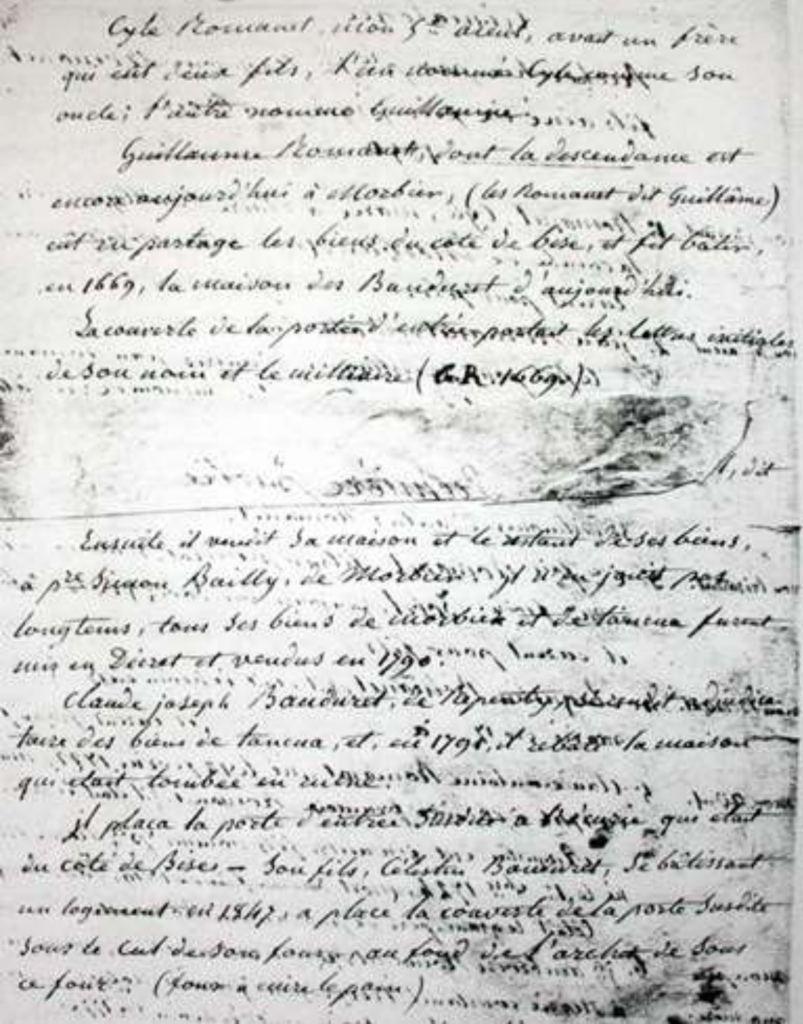 Cyle Romanet, mon 5e aieul, avait un frère
qui eut deux fils, l'un nommé Cyle comme son
oncle; l'autre nommé Guillaume.
Guillaume Romanet, dont la descendance est
encore aujourd'hui à Morbier, (les Romanet dit Guillâme)
eût en partage les biens du côté de bise, et fit bâtir,
en 1669, la maison des Bauduret d'aujourd'hui.
La couverte de la porte d'entrée portait les lettres initiales
de son nom et le millième (G. R. 1669.)
dit
Ensuite il vendit sa maison et le restant de ses biens,
à pre Simon Bailly, de Morbier. Il n'en jouit pas
longtems, tous ses biens de Morbier et de tancua furent
mis en Décret et vendus en 1790.
Claude joseph Bauduret, de
taire des biens de tancua, et, en 1791, il rebâtit la maison
qui était tombée en ruine.
Il plaça la porte d'entrée à qui était
du côté de Bise. – Son fils, Célestin Bauduret, se bâtissant
un logement en 1847, a placé la couverte de la porte susdite
sous le cul de son four, au fond de l'archet de sous
ce four. (four à cuire le pain.)